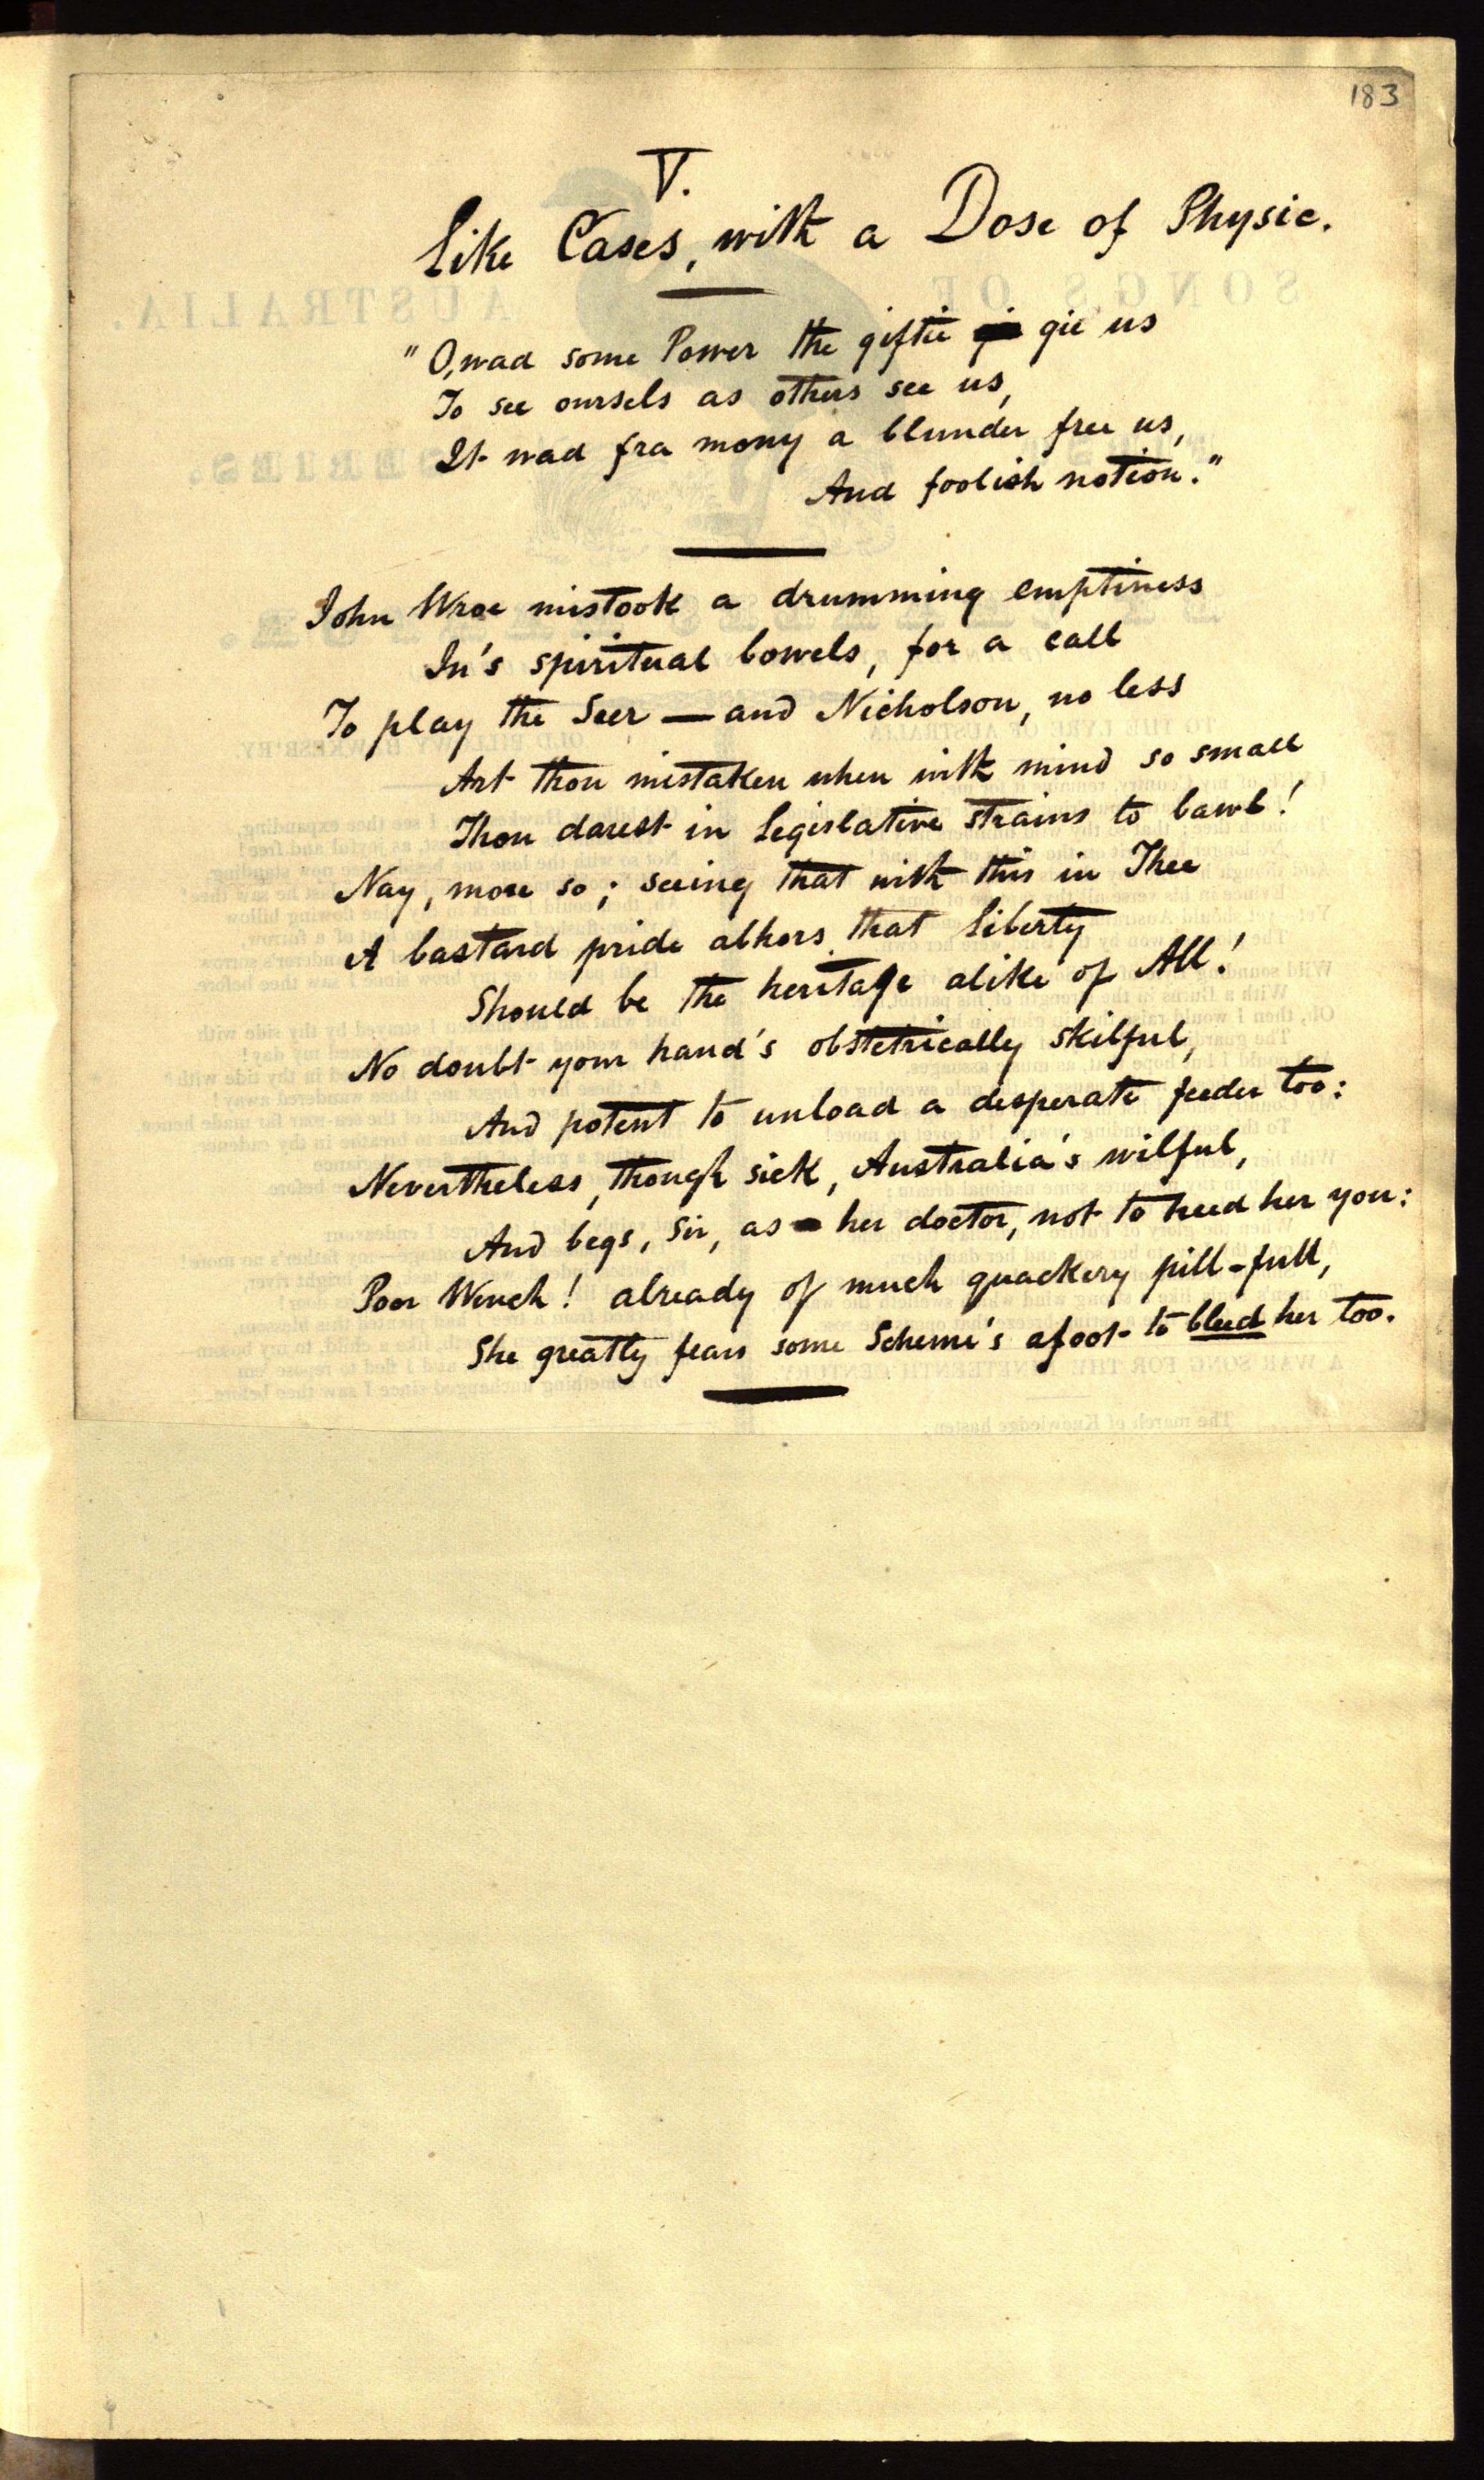 183
V.
Like Cases, with a Dose of Physic.
"O, wad some Power the giftie gie us
To see oursels as others see us,
It wad fra mony a blunder free us,
And foolish notion."
John Wroe mistook a drumming emptiness
In's spiritual bowels, for a call
To play the Seer — and Nicholson, no less
Art thou mistaken when with mind so small
Thou darest in Legislative strains to bawl!
Nay, more so; seeing that with this in Thee
A bastard pride abhors that Liberty
Should be the heritage alike of All!
No doubt your hand's obstetrically skilful,
And potent to unload a desperate feeder too:
Nevertheless, though sick, Australia's wilful,
And begs, Sir, as her doctor, not to heed her you:
Poor Wench! already of much quackery pill-full,
She greatly fears some Scheme's afoot to bleed her too.
SONGS OF AUSTRALIA.